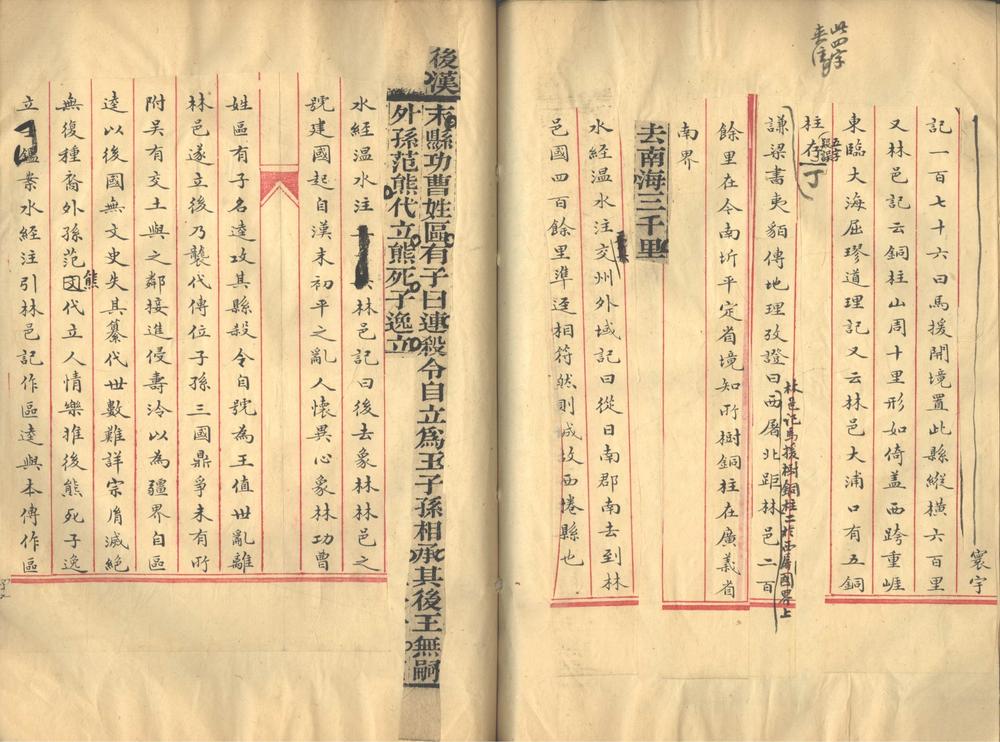 此四字
寰宇
記一百七十六曰馬援開境置此縣縱橫六百里
又林邑記云銅柱山周十里形如倚蓋西跨重崖
東臨大海屈璆道理記又云林邑大浦口有五銅
柱存
丁
謙梁書夷貊傳地理攷證曰西屠北距林邑二百
林邑記馬援樹銅柱二於西屠國界上
餘里在今南圻平定省境知所樹銅柱在廣義省
南界
去南海三千里
水經溫水注交州外域記曰從日南郡南去到林
邑國四百餘里準逕相符然則城故西捲縣也
後漢
末縣功曹姓區有子曰連殺令自立爲王子孫相承其後王無嗣
外孫范熊代立熊死子逸立
水經溫水注林邑記曰後去象林林邑之
號建國起自漢末初平之亂人懷異心象林功曹
姓區有子名逵攻其縣殺令自號為王值世亂離
林邑遂立後乃襲代傳位子孫三國鼎爭未有所
附吳有交土與之鄰接進侵壽泠以為疆界自區
逵以後國無文史失其纂代世數難詳宗胤滅絕
無復種裔外孫范熊代立人情樂推後熊死子逸
立
案水經注引林邑記作區逵與本傳作區